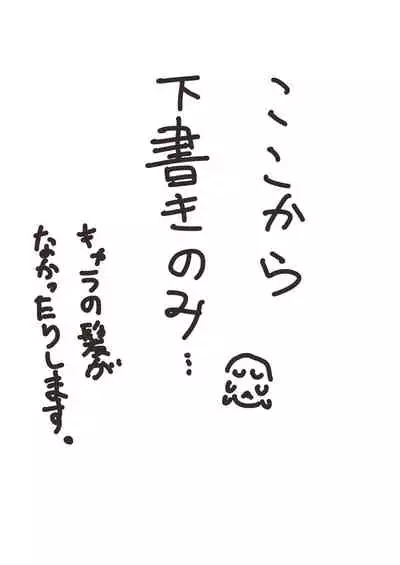 ここから
下書きのみ…
キャラの髪が
なかったりします。